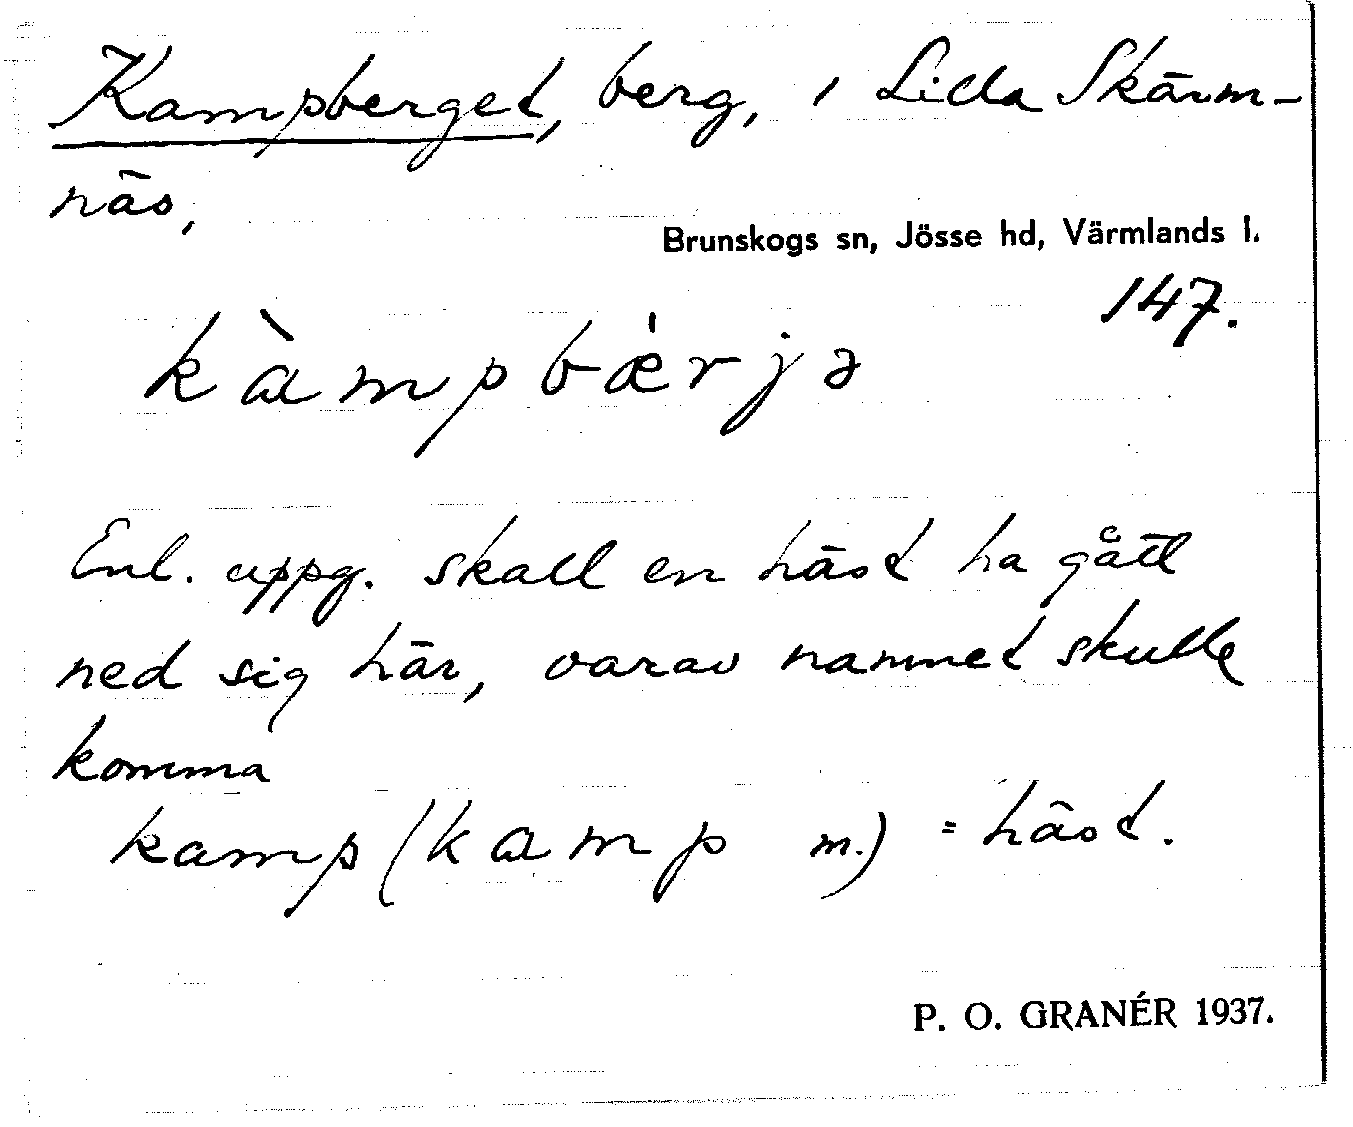 Kampberget, berg, i Lida Skärm-
näs,
Brunskogs sn, Jösse hd, Värmlands l.
147.
kàmpbǽrjə
Enl. uppg. skall en häst ha gått
ned sig här, varav namnet skulle
komma
kamp (kamp m.) = häst.
P. O. GRANÉR 1937.